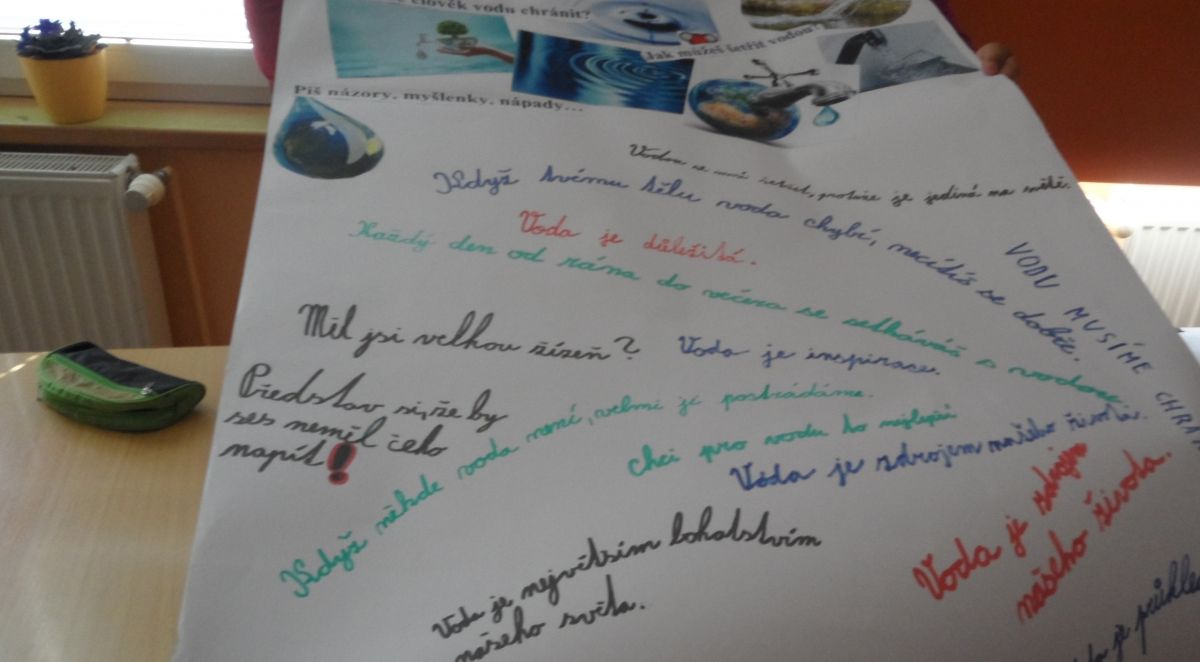 člověk vodu chránit?
Jak můžeš šetřit vodou?
Piš názory, myšlenky, nápady...
Voda se musí šetřit, protože je jediná na světě.
Když tvému tělu voda chybí, necítíš se dobře.
Voda je důležitá.
Každý den od rána do večera se setkáváš s vodou.
VODU MUSÍME
Měl jsi velkou žízeň?
Voda je inspirace.
Představ si, že by
ses neměl čeho
napít!
Když někde voda není, velmi ji postrádáme.
Chci pro vodu to nejlepší
Voda je zdrojem našeho života.
Voda je zdrojem
našeho života.
Voda je největším bohatstvím
našeho světa.
je